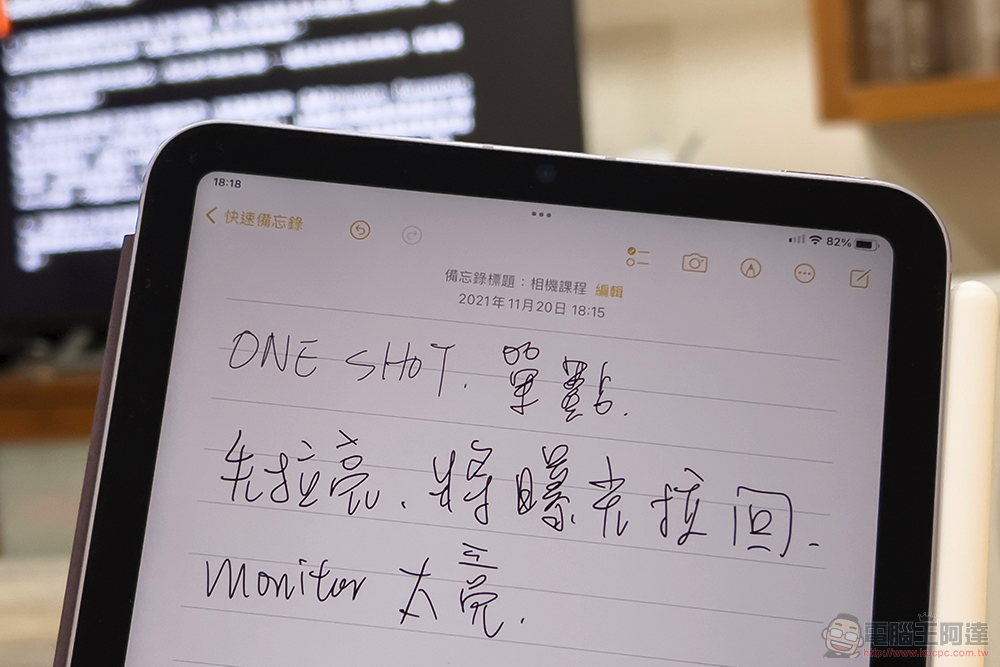 18:18
82%
快速備忘錄
備忘錄標題：相機課程 編輯
2021年11月20日 18:15
ONE SHOT. 單點.
先拉亮、將曝光拉回.
monitor 太亮.
電腦王阿達
http://www.kocpc.com.tw